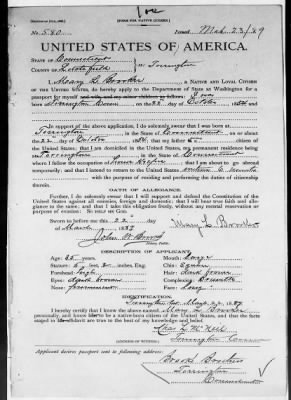 [FORM FOR NATIVE CITIZEN.]
No. 580. Issued, Mch 23/89
UNITED STATES OF AMERICA.
STATE OF Connecticut
COUNTY of Litchfield Torrington
I, Mary L. Brooker, A NATIVE AND LOYAL CITIZEN
OF THE UNITED STATES, do hereby apply to the Department of State at Washington for a
passport for myself
born at Torrington Conn on the 22 day of October
In support of the above application, I do solemnly swear that I was born at
Torrington in the State of Connecticut on or
about the 22 day of October that my father citizen
of the United States; that I am domiciled in the United States, my permanent residence being
at Torrington in the State of Connecticut
where I follow the occupation of that I am about to go abroad
temporarily; and that I intend to return to the United States
with the purpose of residing and performing the duties of citizenship
therein.
OATH OF ALLEGIANCE.
Further, I do solemnly swear that I will support and defend the Constitution of the
United States against all enemies, foreign and domestic; that I will bear true faith and
allegiance to the same; and that I take this obligation freely, without any mental reservation or
purpose of evasion: SO HELP ME GOD.
Sworn to before me this 22 day
of March 1889 Mary L. Brooker
John W. Brooks
Notary Public.
DESCRIPTION OF APPLICANT.
Age: years. Mouth: Large
Stature: 5 ft. in., Eng. Chin:
Forehead: high Hair: Dark brown
Eyes: brown Complexion: Brunette
Nose: Face: Long
IDENTIFICATION.
Torrington 22, 1889
I hereby certify that I know the above named Mary L. Brooker
personally, and know her to be a native-born citizen of the United States, and that the facts
stated in affidavit are true to the best of my knowledge and belief.
[ADDRESS OF WITNESS.] Torrington Conn
Applicant desires passport sent to following address:
Brooks Brothers
Torrington
Connecticut